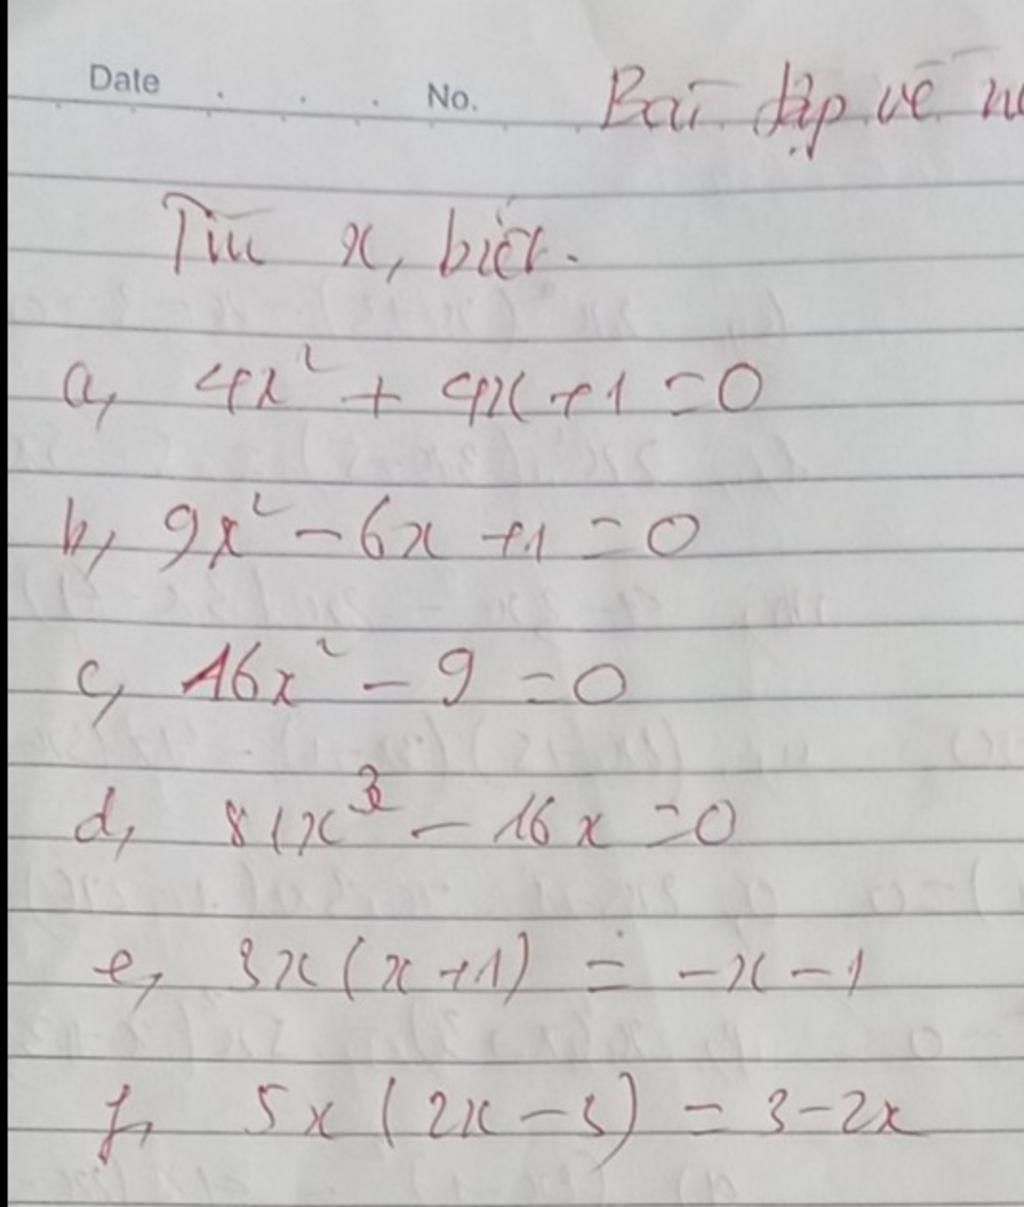 Date No. Bài tập về
Tìm x, biết.
a, 4x² + 4x + 1 = 0
b, 9x² - 6x + 1 = 0
c, 16x² - 9 = 0
d, 81x³ - 16x = 0
e, 3x(x+1) = -x-1
f, 5x(2x-3) = 3-2x